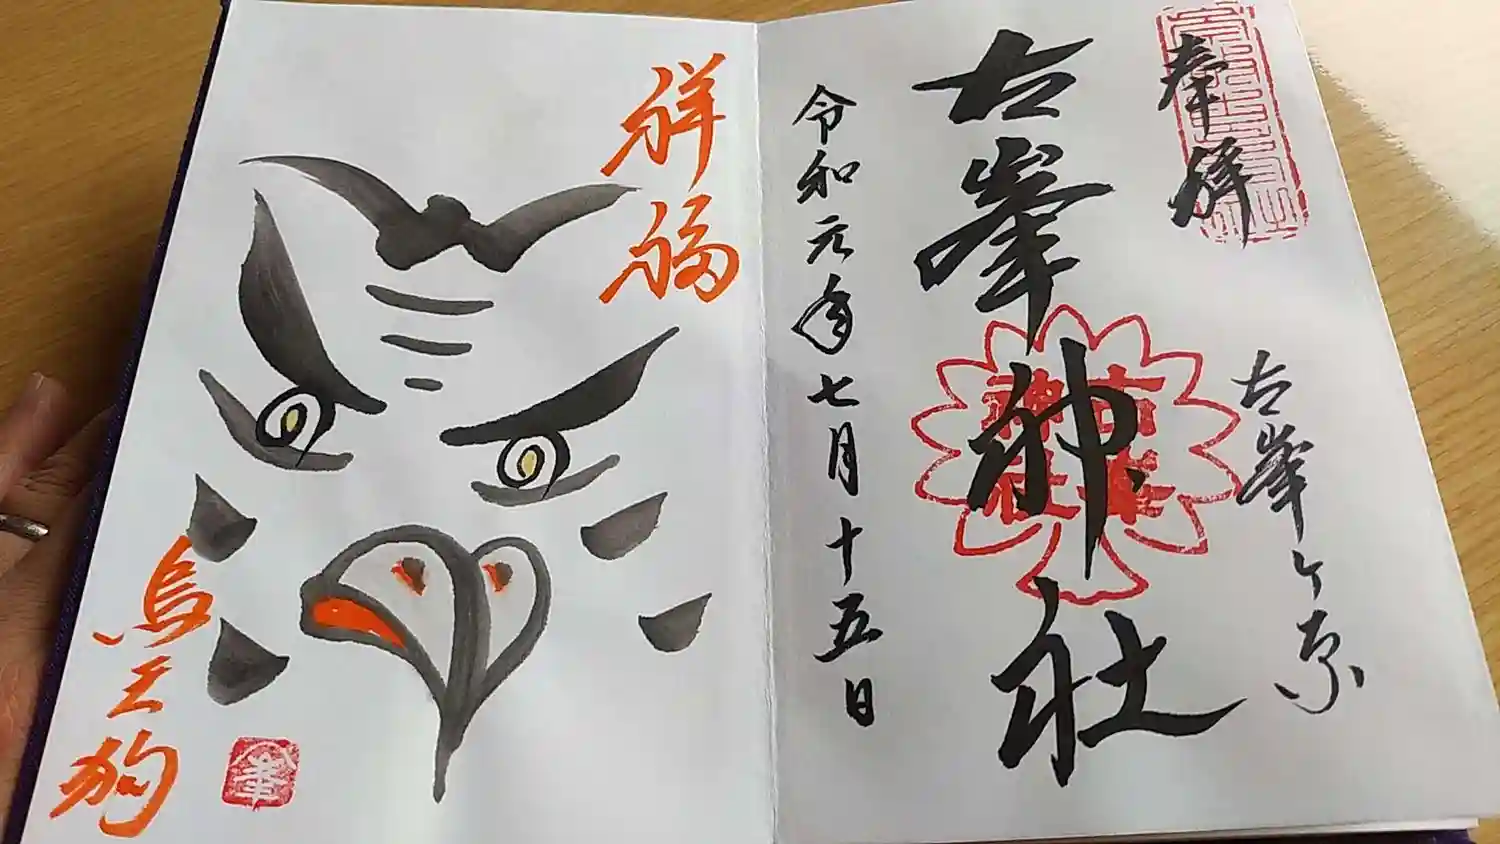 奉拝
古峯ヶ原
古峯神社
古峯神社
令和元年七月十五日
祥福
烏天狗
峯